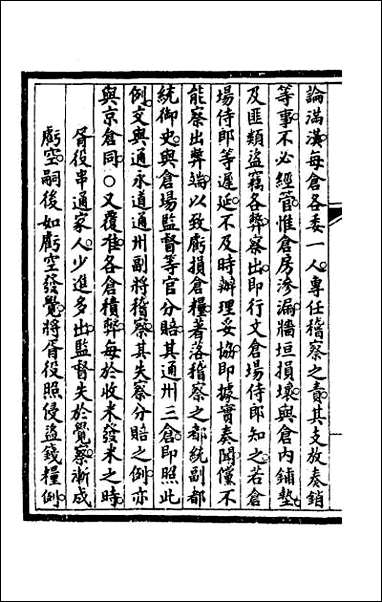 論滿漢每倉各委一人專任稽察之責其支放奏銷
等事不必經管惟倉房滲漏牆垣損壞與倉內鋪墊
及匪類盜竊各弊察出即行文倉場侍郎知之若倉
場侍郎等遲延不及時辦理妥協即據實奏聞儻不
能察出弊端以致虧損倉糧著落稽察之都統副都
統御史與倉場監督等官分賠其通州三倉即照此
例交與通永道通州副將稽察其失察分賠之例亦
與京倉同○又覆准各倉積弊每於收米發米之時
胥役串通家人少進多出監督失於覺察漸成
虧空嗣後如虧空發覺將胥役照侵盜錢糧例